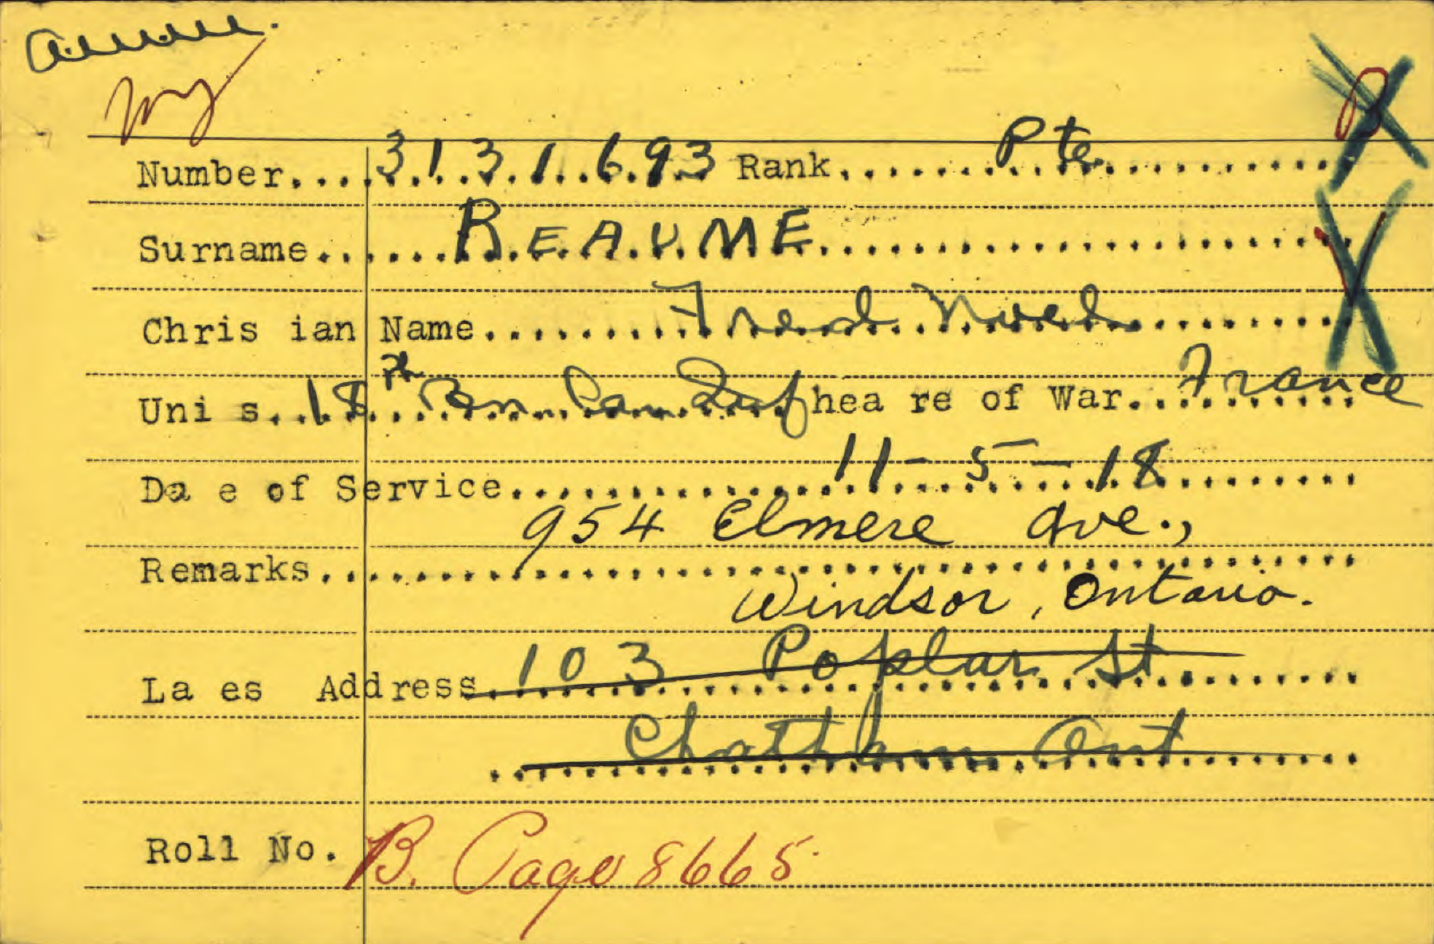 Number....3131693 Rank....Pte.
Surname....REAUME....
Chris ian Name....Fred Noel....
Uni s..18th Bn. Can. Inf hea re of War..France
Da e of Service....11-5-18....
954 Elmere Ave.,
Remarks....
Windsor, Ontario.
La es Address..103 Poplar St.
Chatham Ont
Roll No. B. Page 8665